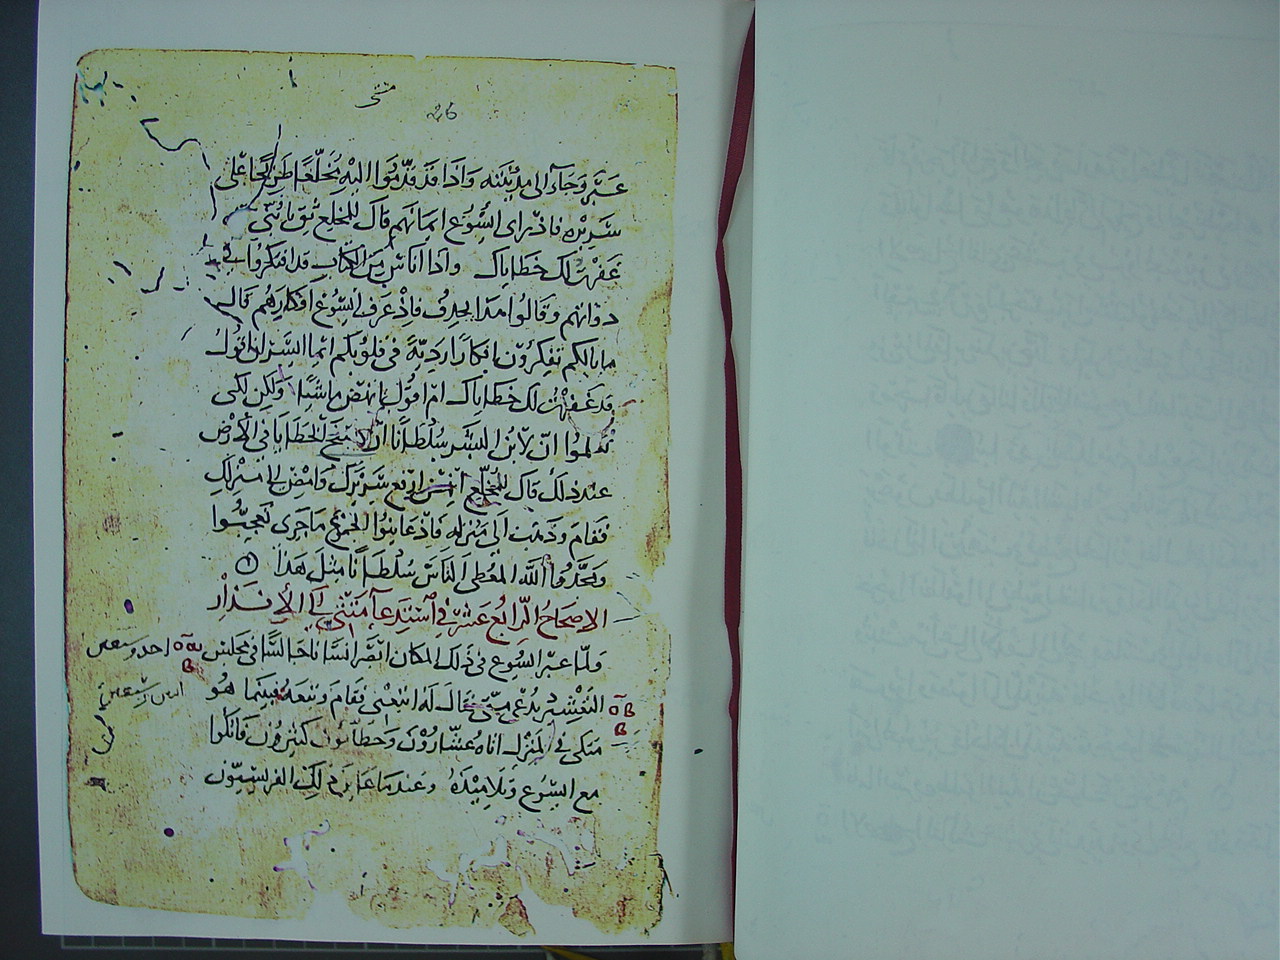 متى
26
عبر وجاء الى مدينته واذا قد قدّموا اليه مخلّعًا طريحًا على
سريره فاذ راى ايسوع ايمانهم قال للمخلع ثق يا بنيّ
غفرت لك خطاياك واذا اناس من الكتاب قد افتكروا في
ذواتهم وقالوا هذا يجدف فاذ عرف ايسوع افكارهم قال
ما بالكم تفكرون افكارًا رديةً في قلوبكم ايما ايسر ان اقول
قد غفرت لك خطاياك ام اقول انهض ماشيًا ولكن لكى
تعلموا انّ لابن البشر سلطانًا ان يمنح الخطايا في الارض
عند ذلك قال للمخلّع انهض ارفع سريرك وامض الى منزلك
فقام وذهب الى منزله فاذ عاينوا الجموع ما جرى تعجبوا
ومجدوا الله المعطى الناس سلطانًا مثل هذا
الاصحاح الرابع عشر في استدعآ متى الى الانذار
ولما عبر ايسوع في ذلك المكان ابصر انسانًا جالسًا في مجلس
التعشير يدعى متى فقال له اتبعنى فقام وتبعه فبينما هو
متكى في المنزل اتاه عشارون وخطاؤون كثيرون فاتكوا
مع ايسوع وتلاميذه وعندما عاين ذلك الفريسيون
احد وسبعين
اثنين وسبعين